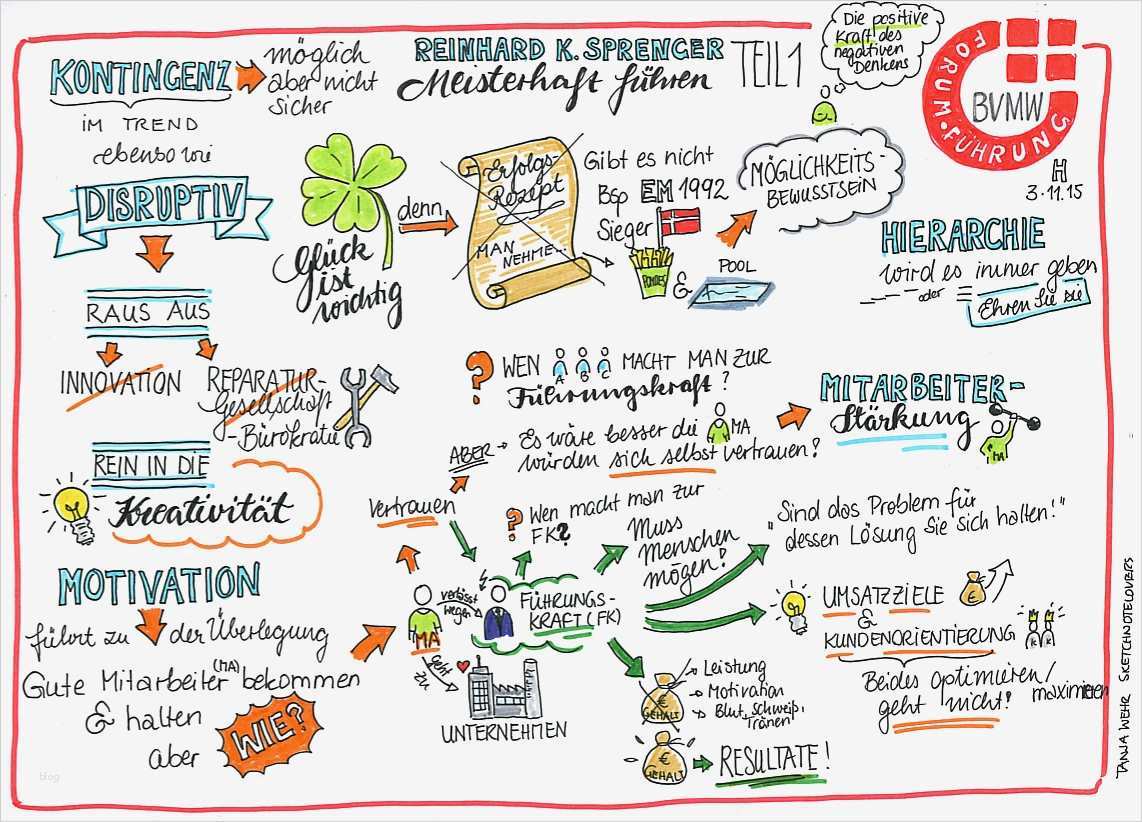 KONTINGENZ
möglich
aber nicht
sicher
IM TREND
ebenso wie
DISRUPTIV
RAUS AUS
INNOVATION
REPARATUR-
Gesellschaft
-Bürokratie
REIN IN DIE
Kreativität
MOTIVATION
führt zu
der Überlegung
Gute Mitarbeiter (MA) bekommen
& halten
aber
WIE?
REINHARD K. SPRENGER
Meisterhaft führen
TEIL 1
Die positive
Kraft des
negativen
Denkens
FORUM・FÜHRUNG
BVMW
H
3.11.15
Glück
ist
wichtig
denn
Erfolgs-
Rezept
MAN
NEHME...
Gibt es nicht
Bsp EM 1992
Sieger
POMMES
&
POOL
MÖGLICHKEITS-
BEWUSSTSEIN
HIERARCHIE
wird es immer geben
oder
Ehren Sie sie
? WEN
A B C
MACHT MAN ZUR
Führungskraft?
ABER
Es wäre besser die MA
würden sich selbst vertrauen!
MITARBEITER-
Stärkung
MA
Vertrauen
? Wen macht man zur
FK?
Muss
Menschen
mögen!
"Sind das Problem für
dessen Lösung Sie sich halten!"
MA
verlässt
wegen
FÜHRUNGS-
KRAFT (FK)
geht
zu
UNTERNEHMEN
UMSATZZIELE
€
&
KUNDENORIENTIERUNG
K K
Beides optimieren/
maximieren
geht nicht!
€
GEHALT
Leistung
Motivation
Blut, Schweiß,
Tränen
€
GEHALT
RESULTATE!
TANJA WEHR SKETCHNOTELOVERS
blog